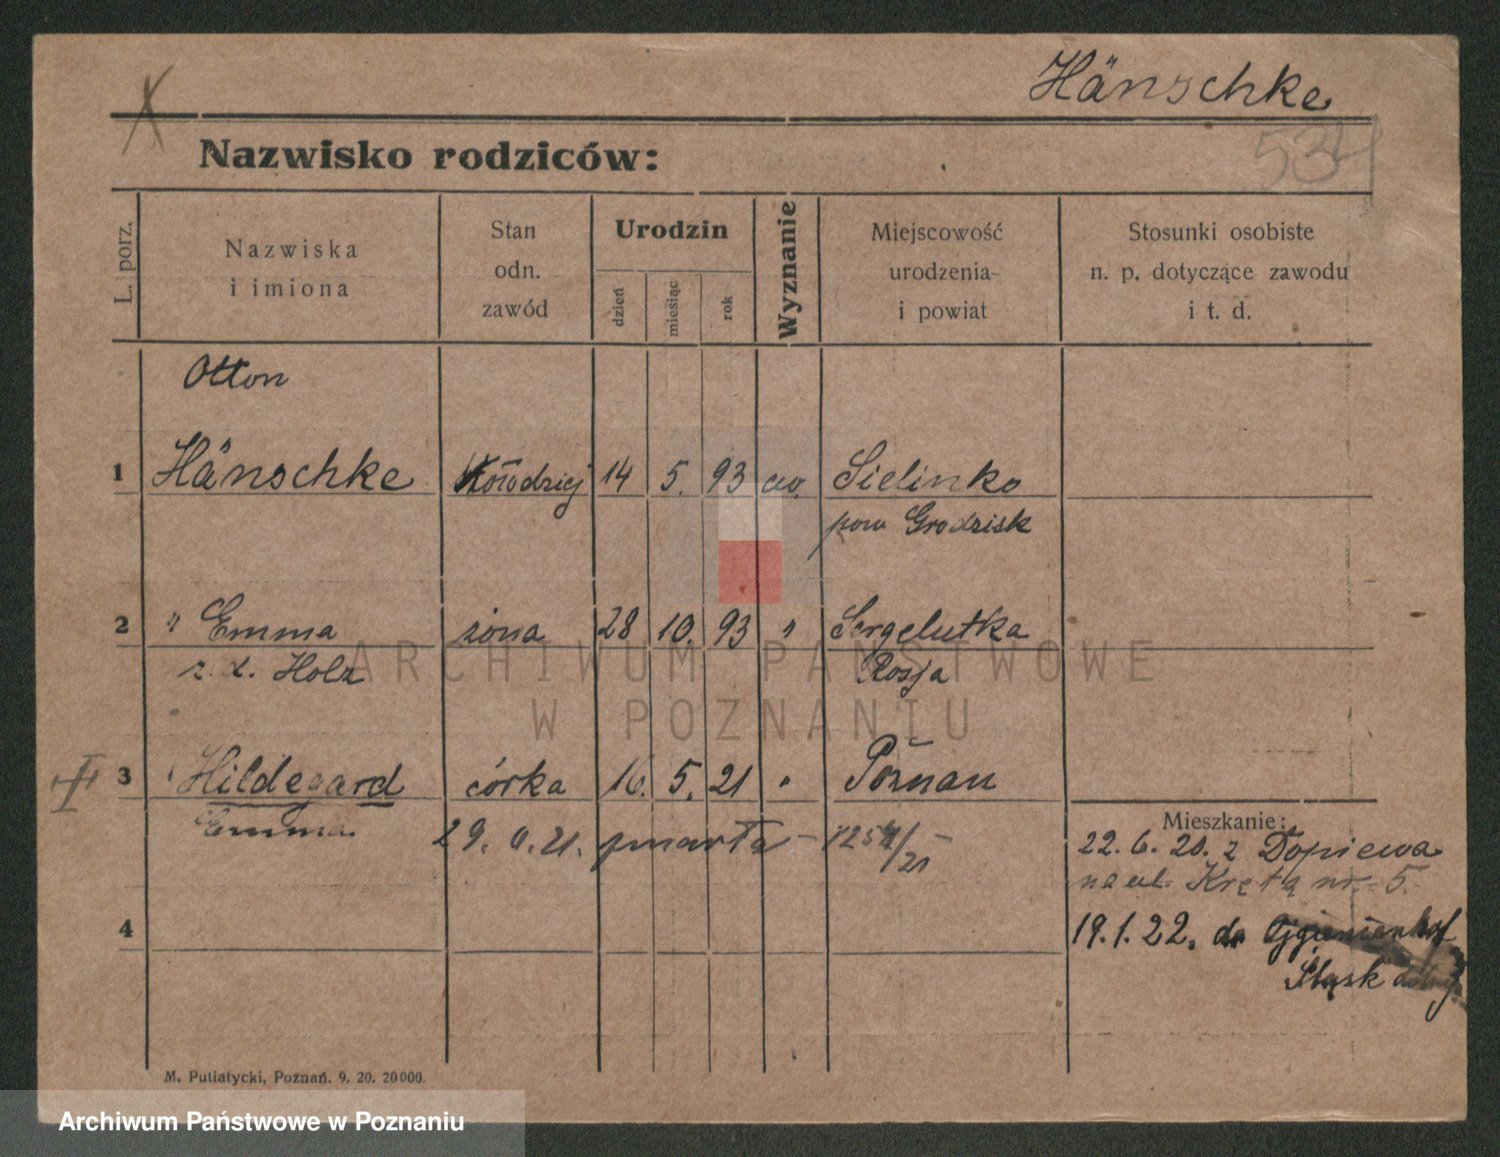 Hänschke
534
Nazwisko rodziców:
L. porz.
Nazwiska
i imiona
Stan
odn.
zawód
Urodzin
dzień
miesiąc
rok
Wyznanie
Miejscowość
urodzenia
i powiat
Stosunki osobiste
n. p. dotyczące zawodu
i t. d.
Otton
1 Hänschke Kołodziej 14 5. 93 ew. Sielinko
pow Grodzisk
2 " Emma żona 28 10. 93 " Sergelutka
z. d. Holz Rosja
3 Hildegard córka 16. 5. 21 " Poznań
Emma 29. 6. 21. zmarła – 1254/21 –
Mieszkanie:
22. 6. 20. z Dopiewa
na ul. Krętą nr. 5.
4
19. 1. 22. do
Śląsk
M. Putiatycki, Poznań. 9. 20. 20000.
ARCHIWUM PAŃSTWOWE
W POZNANIU
Archiwum Państwowe w Poznaniu